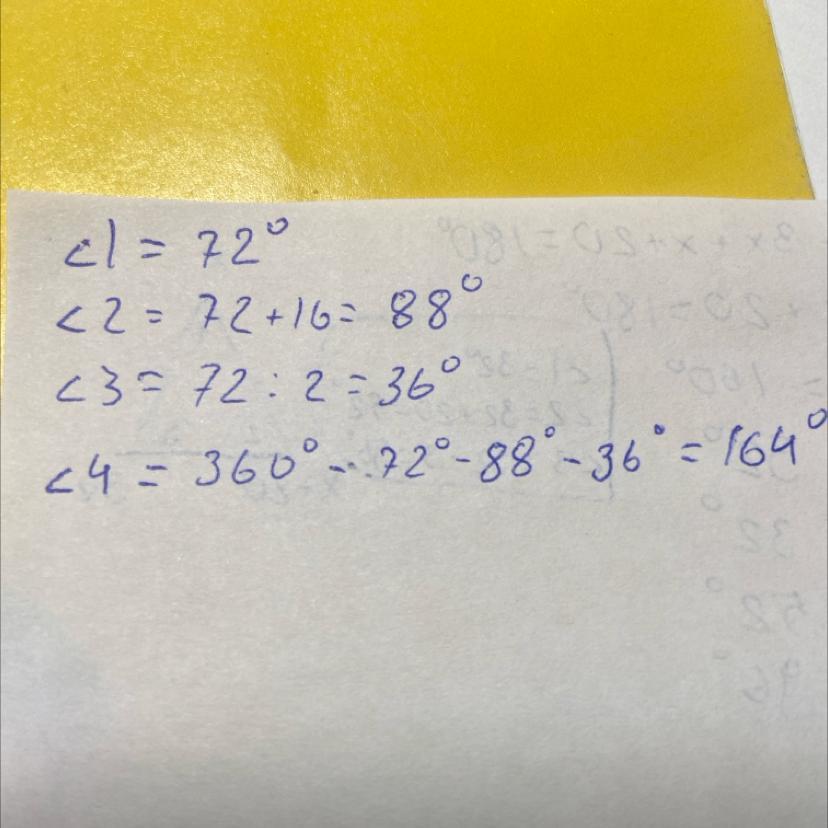 <1 = 72°
<2 = 72+16= 88°
<3 = 72 : 2 = 36°
<4 = 360° - 72° - 88° - 36° = 164°